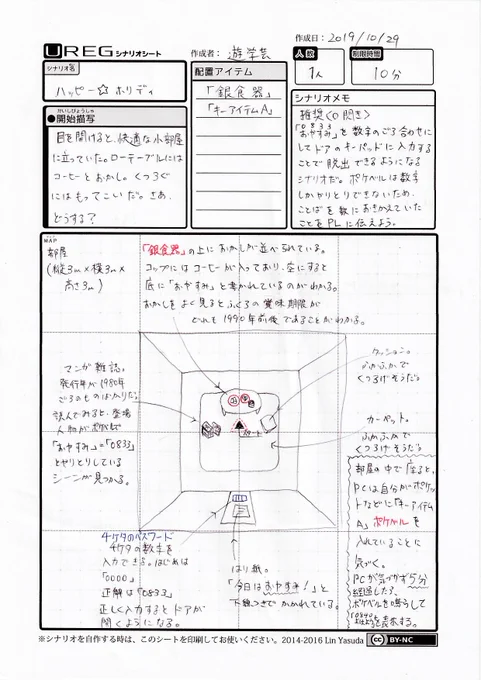 作成日: 2019/10/29
UREG シナリオシート
作成者: 遊学芸
人数
1人
制限時間
10分
シナリオ名
ハッピー☆ホリディ
配置アイテム
「銀食器」
「キーアイテムA」
かいしびょうしゃ
●開始描写
目を開けると、快適な小部屋
に立っていた。ローテーブルには
コーヒーとおかし。くつろぐ
にはもってこいだ。さあ、
どうする?
シナリオメモ
推奨〈0開き〉
0833
「おやすみ」を数字のごろ合わせに
してドアのキーパッドに入力する
ことで脱出できるようになる
シナリオだ。ポケベルは数字
しかやりとりできないため、
ことばを数におきかえていた
ことをPLに伝えよう。
MAP
部屋
(縦3m×横3m×
高さ3m)
「銀食器」の上におかしが並べられている。
コップにはコーヒーが入っており、空にすると
底に「おやすみ」と書かれているのがわかる。
おかしをよく見るとふくろの賞味期限が
どれも1990年前後であることがわかる。
マンガ雑誌。
発行年が1980年
ごろのものばかりだ。
読んでみると、登場
人物がポケベルで
「おやすみ」=「0833」
とやりとりしている
シーンが見つかる。
クッション。
ふかふかで
くつろげそうだ。
カーペット。
ふかふかで
くつろげそうだ
スタート
部屋の中で座ると、
PCは自分がポケッ
トなどに「キーアイテム
A」ポケベルを
入れていることに
気づく。
PCが気づかず5分
経過したら、
ポケベルを鳴らして
4ケタのパスワード
4ケタの数字を
入力できる。はじめは
「0000」
正解は「0833」
正しく入力するとドアが
開くようになる。
はり紙。
「今日はおやすみ!」と
下線つきでかかれている。
※シナリオを自作する時は、このシートを印刷してお使いください。2014-2016 Lin Yasuda
cc BY-NC